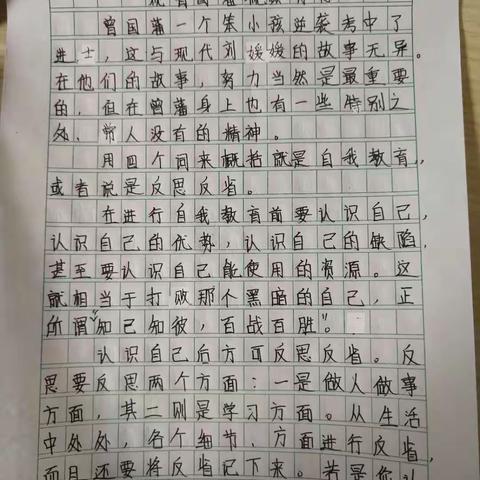 观曾国藩视频
曾国藩一个笨小孩逆袭考中了
进士，这与现代刘媛媛的故事无异。
在他们的故事，努力当然是最重要
的，但在曾藩身上也有一些特别之
处、常人没有的精神。
用四个词来概括就是自我教育，
或者说是反思反省。
在进行自我教育前要认识自己，
认识自己的优势，认识自己的缺陷，
甚至要认识自己能使用的资源。这
就相当于打败那个黑暗的自己，正
所谓“知己知彼，百战百胜”。
认识自己后方可反思反省。反
思要反思两个方面：一是做人做事
方面，其二则是学习方面。从生活
中处处，各个细节、方面进行反省，
而且还要将反省记下来。若是你